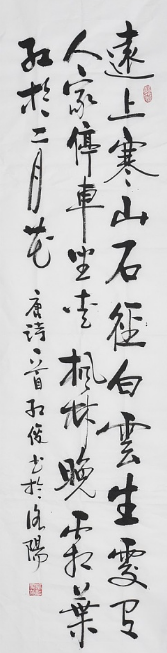 遠上寒山石徑白雲生處有
人家停車坐愛楓林晚霜葉
紅於二月花 唐詩一首紅俊书於洛陽